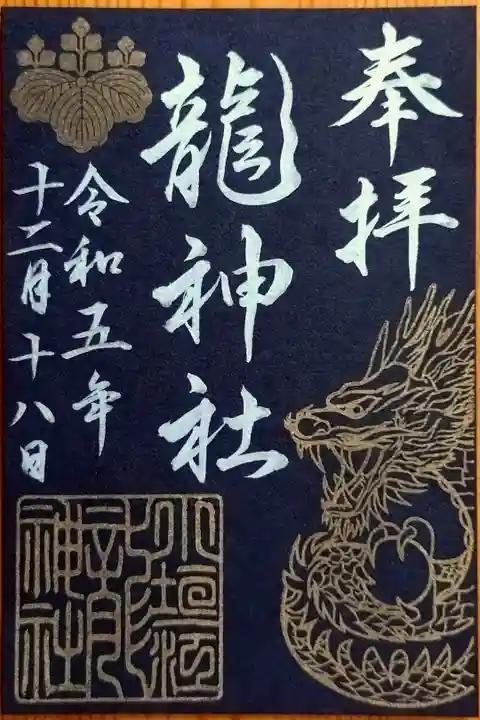 奉拝
龍神社
令和五年
十二月十八日
龍
神社